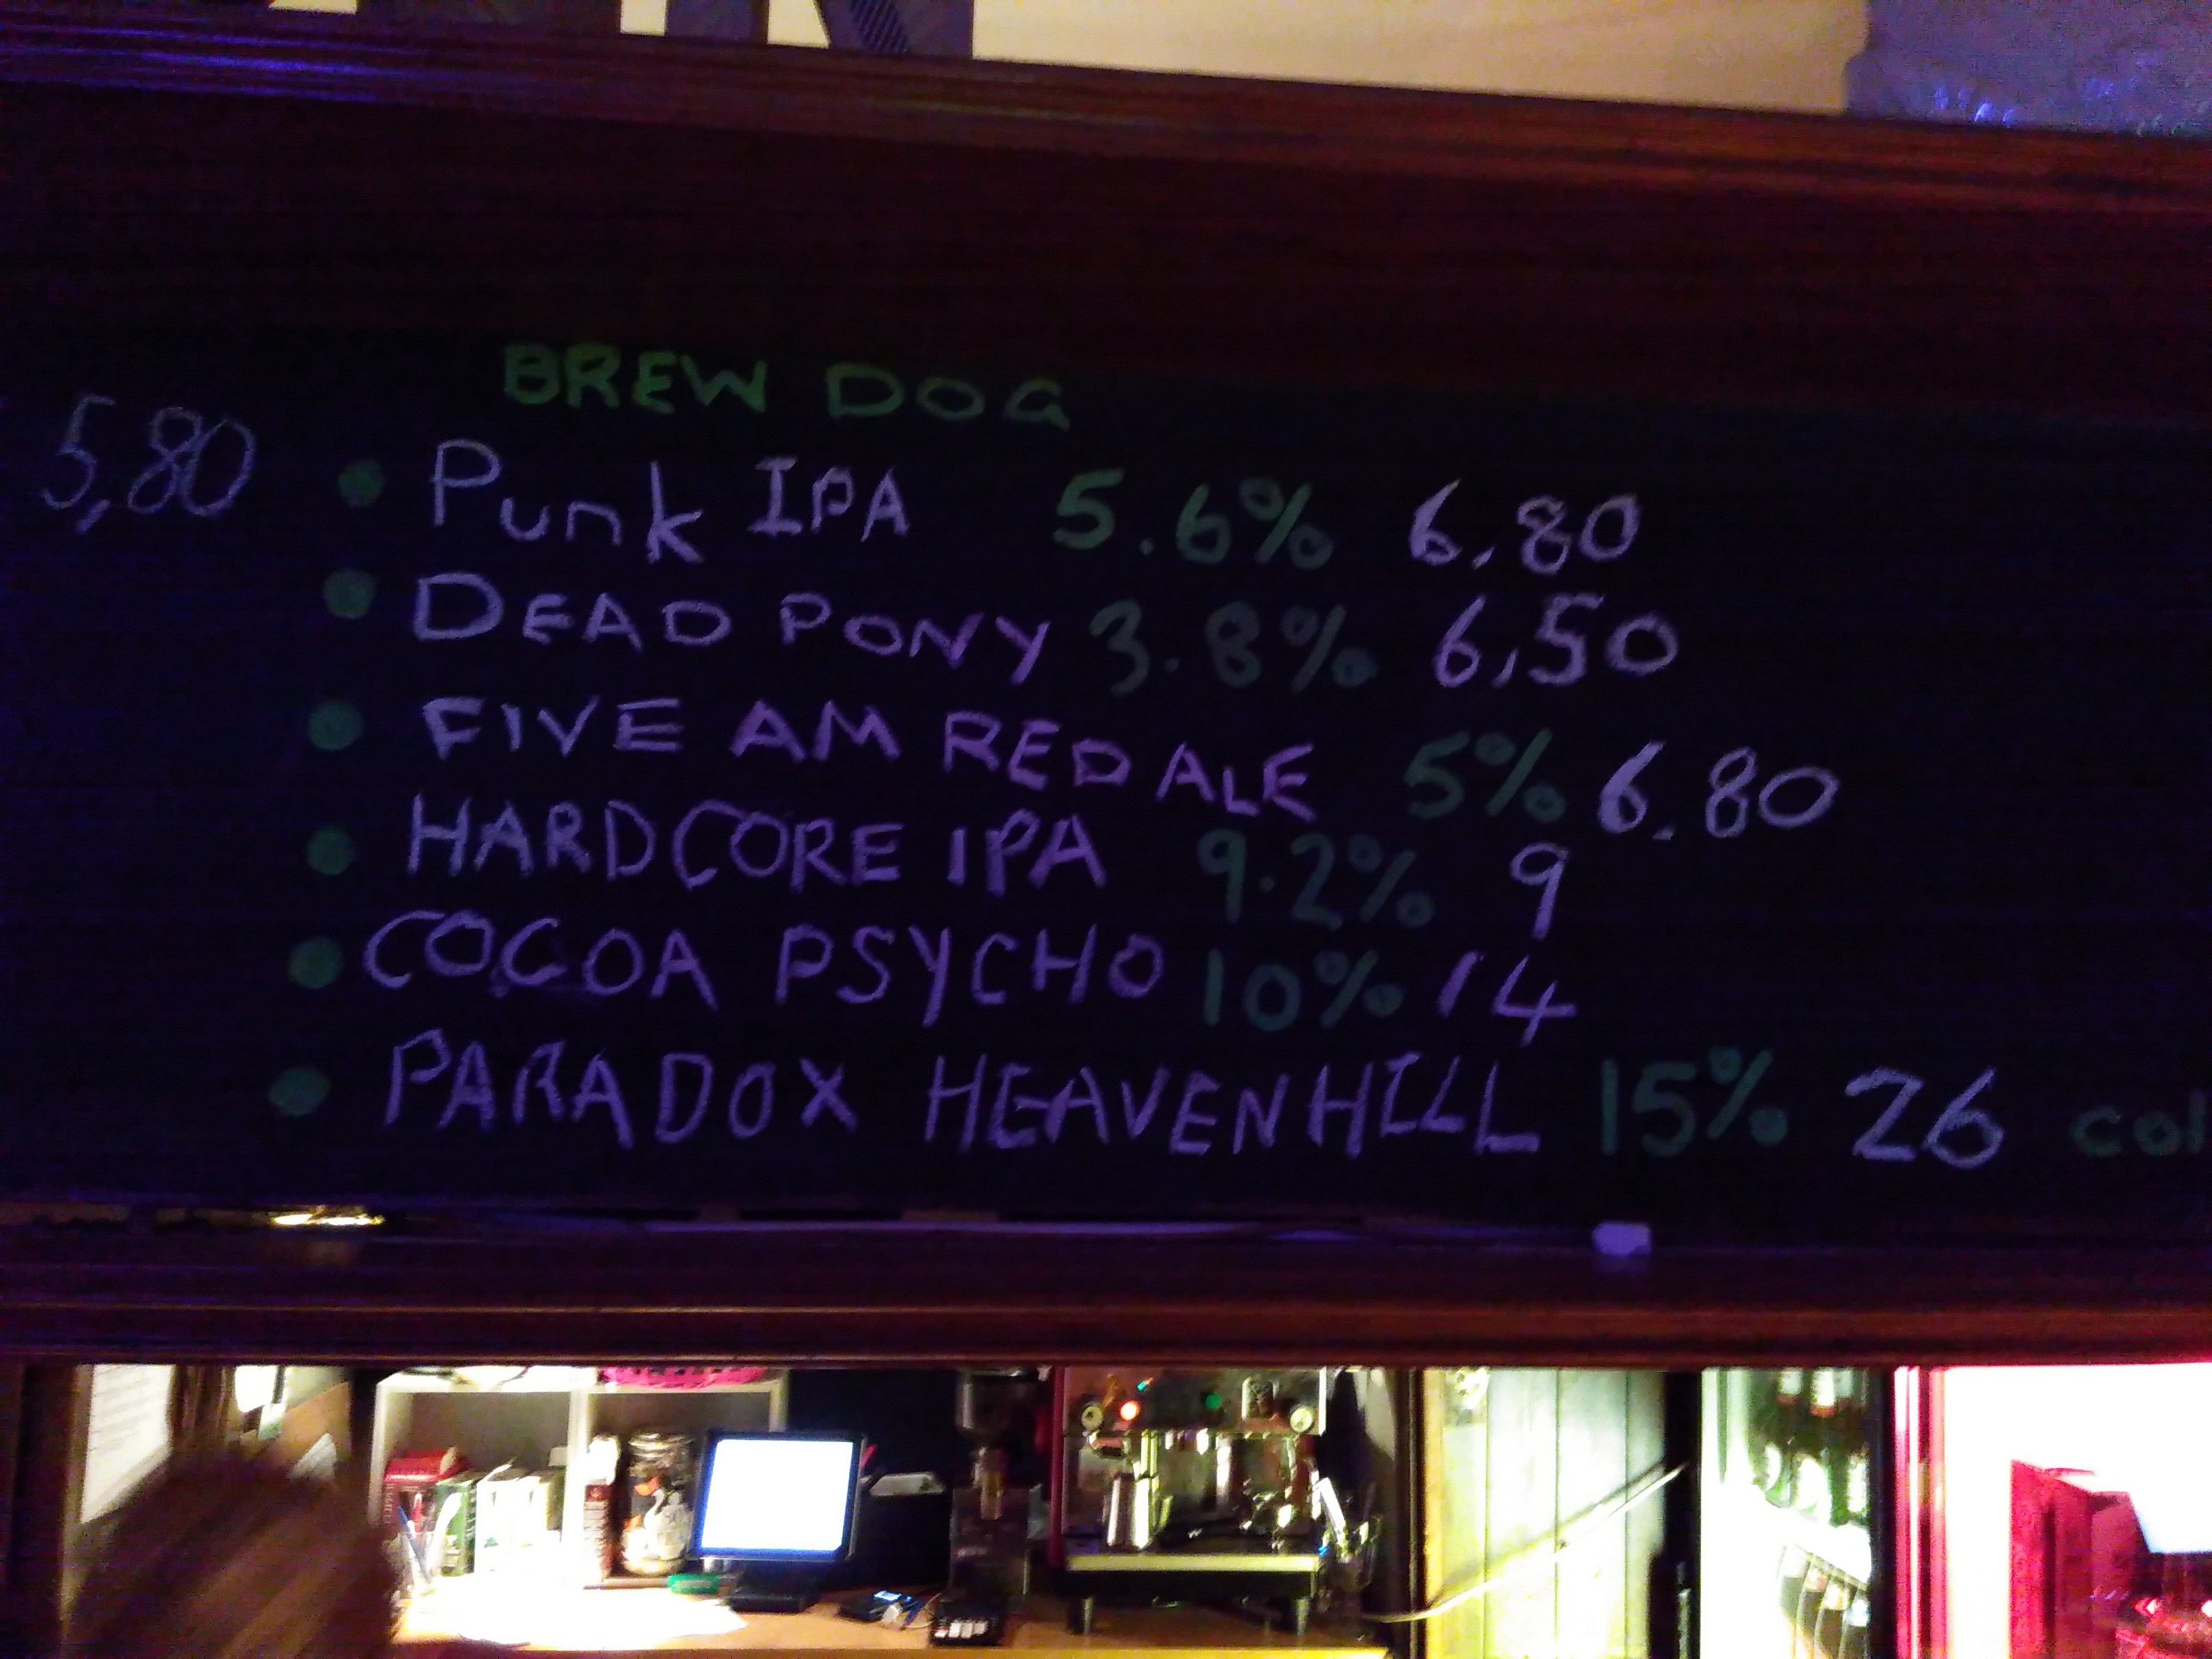 BREW DOG
5,80
• Punk IPA 5.6% 6,80
• DEAD PONY 3.8% 6,50
• FIVE AM RED ALE 5% 6.80
• HARDCORE IPA 9.2% 9
• COCOA PSYCHO 10% 14
• PARADOX HEAVENHILL 15% 26 col